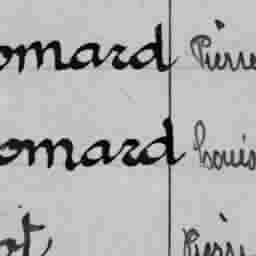 omard Pierre
omard Louis
ot Pierre